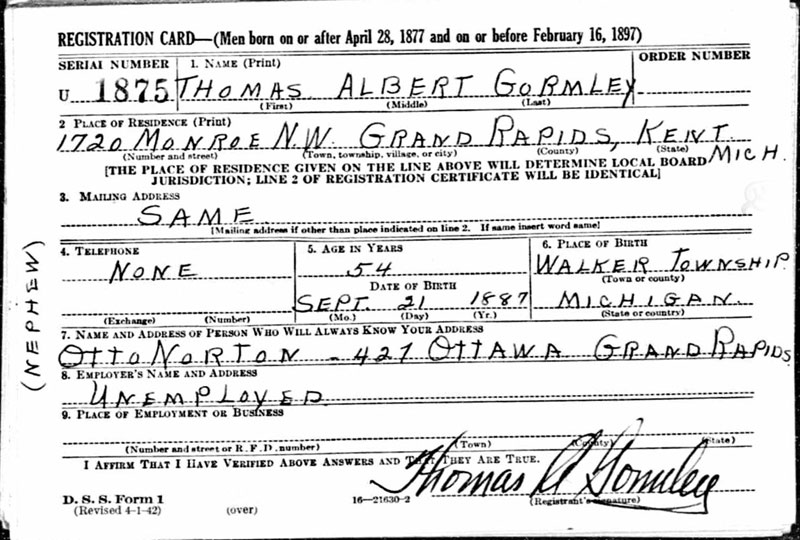 REGISTRATION CARD—(Men born on or after April 28, 1877 and on or before February 16, 1897)
SERIAL NUMBER 1. NAME (Print) ORDER NUMBER
U 1875 THOMAS ALBERT GORMLEY
(First) (Middle) (Last)
2 PLACE OF RESIDENCE (Print)
1720 MONROE N.W. GRAND RAPIDS, KENT. MICH.
(Number and street) (Town, township, village, or city) (County) (State)
[THE PLACE OF RESIDENCE GIVEN ON THE LINE ABOVE WILL DETERMINE LOCAL BOARD
JURISDICTION; LINE 2 OF REGISTRATION CERTIFICATE WILL BE IDENTICAL]
3. MAILING ADDRESS
SAME
[Mailing address if other than place indicated on line 2. If same insert word same]
4. TELEPHONE 5. AGE IN YEARS 6. PLACE OF BIRTH
NONE 54 WALKER TOWNSHIP
DATE OF BIRTH (Town or county)
SEPT. 21 1887 MICHIGAN.
(Exchange) (Number) (Mo.) (Day) (Yr.) (State or country)
7. NAME AND ADDRESS OF PERSON WHO WILL ALWAYS KNOW YOUR ADDRESS
(NEPHEW)
OTTO NORTON - 427 OTTAWA GRAND RAPIDS
8. EMPLOYER'S NAME AND ADDRESS
UNEMPLOYED
9. PLACE OF EMPLOYMENT OR BUSINESS
(Number and street or R. F. D. number) (Town) (County) (State)
I AFFIRM THAT I HAVE VERIFIED ABOVE ANSWERS AND THAT THEY ARE TRUE.
Thomas A Gormley
D. S. S. Form 1 16—21630-2 (Registrant's signature)
(Revised 4-1-42) (over)